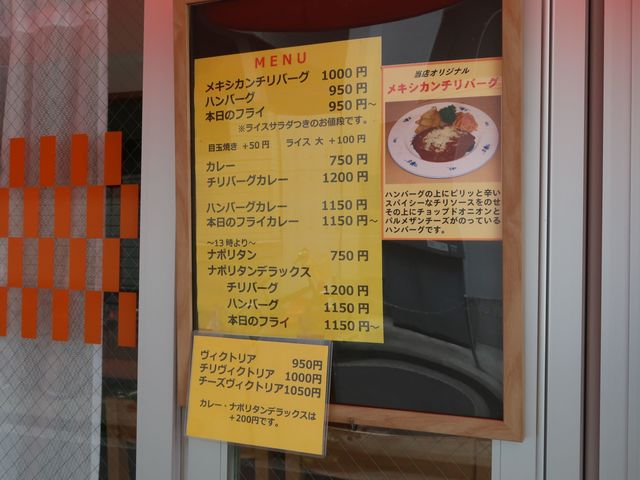 MENU
メキシカンチリバーグ 1000円
ハンバーグ 950円
本日のフライ 950円～
※ライスサラダつきのお値段です。
目玉焼き +50円 ライス 大 +100円
カレー 750円
チリバーグカレー 1200円
ハンバーグカレー 1150円
本日のフライカレー 1150円～
～13時より～
ナポリタン 750円
ナポリタンデラックス
チリバーグ 1200円
ハンバーグ 1150円
本日のフライ 1150円～
当店オリジナル
メキシカンチリバーグ
ハンバーグの上にピリッと辛い
スパイシーなチリソースをのせ
その上にチョップドオニオンと
パルメザンチーズがのっている
ハンバーグです。
ヴィクトリア 950円
チリヴィクトリア 1000円
チーズヴィクトリア1050円
カレー・ナポリタンデラックスは
+200円です。